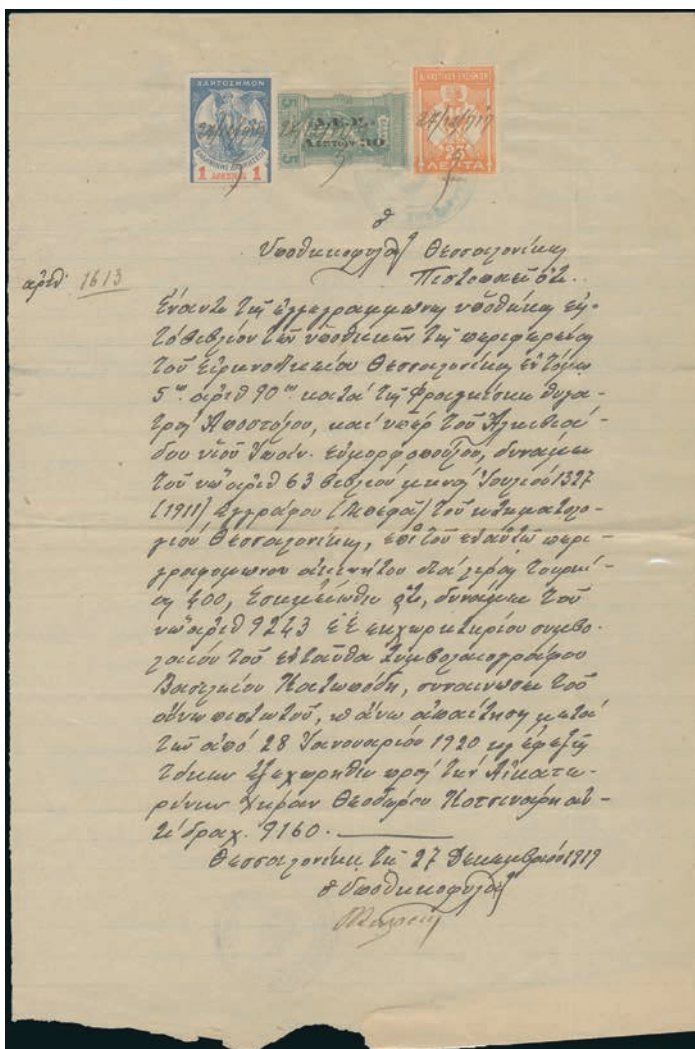 ΧΑΡΤΟΣΗΜΟΝ
1 ΔΡΑΧΜΗ 1
5 5
Λεπτῶν 10
ΛΕΠΤΑ
ὁ
Ὑποθηκοφύλαξ Θεσσαλονίκης
Πιστοποιεῖ ὅτι..
ἀριθ. 1613
Ἔναντι τῆς ἐγγεγραμμένης ὑποθήκης εἰς
τὸ βιβλίον τῶν ὑποθηκῶν τῆς περιφερείας
τοῦ Εἰρηνοδικείου Θεσσαλονίκης ἐν τόμῳ
5ῳ ἀριθ 90ῳ κατὰ τῆς Φραγκίσκης θυγα-
τρὸς Ἀποστόλου, καὶ ὑπὲρ τοῦ Ἀλκιβιά-
δου υἱοῦ Ἰωάν. Εὐμορφοπούλου, δυνάμει
τοῦ ὑπ' ἀριθ 63 βιβλίου μηνὸς Ἰουλίου 1327
(1911) ἐγγράφου τοῦ κτηματολο-
γίου Θεσσαλονίκης, ἐπὶ τοῦ ἐν αὐτῷ περι-
γραφομένου ἀκινήτου διὰ λίρας τουρκί-
ας 400, ἐσημειώθη ὅτι, δυνάμει τοῦ
ὑπ' ἀριθ 9243 ἐ.ἔ. ἐκχωρητηρίου συμβο-
λαίου τοῦ ἐνταῦθα Συμβολαιογράφου
Βασιλείου συναινέσει τοῦ
ἄνω πιστωτοῦ, ἡ ἄνω ἀπαίτησις μετὰ
τῶν ἀπὸ 28 Ἰανουαρίου 1920 κ ἐφεξῆς
τόκων ἐξεχωρήθη πρὸς τὴν Αἰκατε-
ρίνην χήραν Θεοδώρου Κοτσινάρη ἀν-
τὶ δραχ. 9160.
Θεσσαλονίκη τῇ 27 Δεκεμβρίου 1919
ὁ Ὑποθηκοφύλαξ